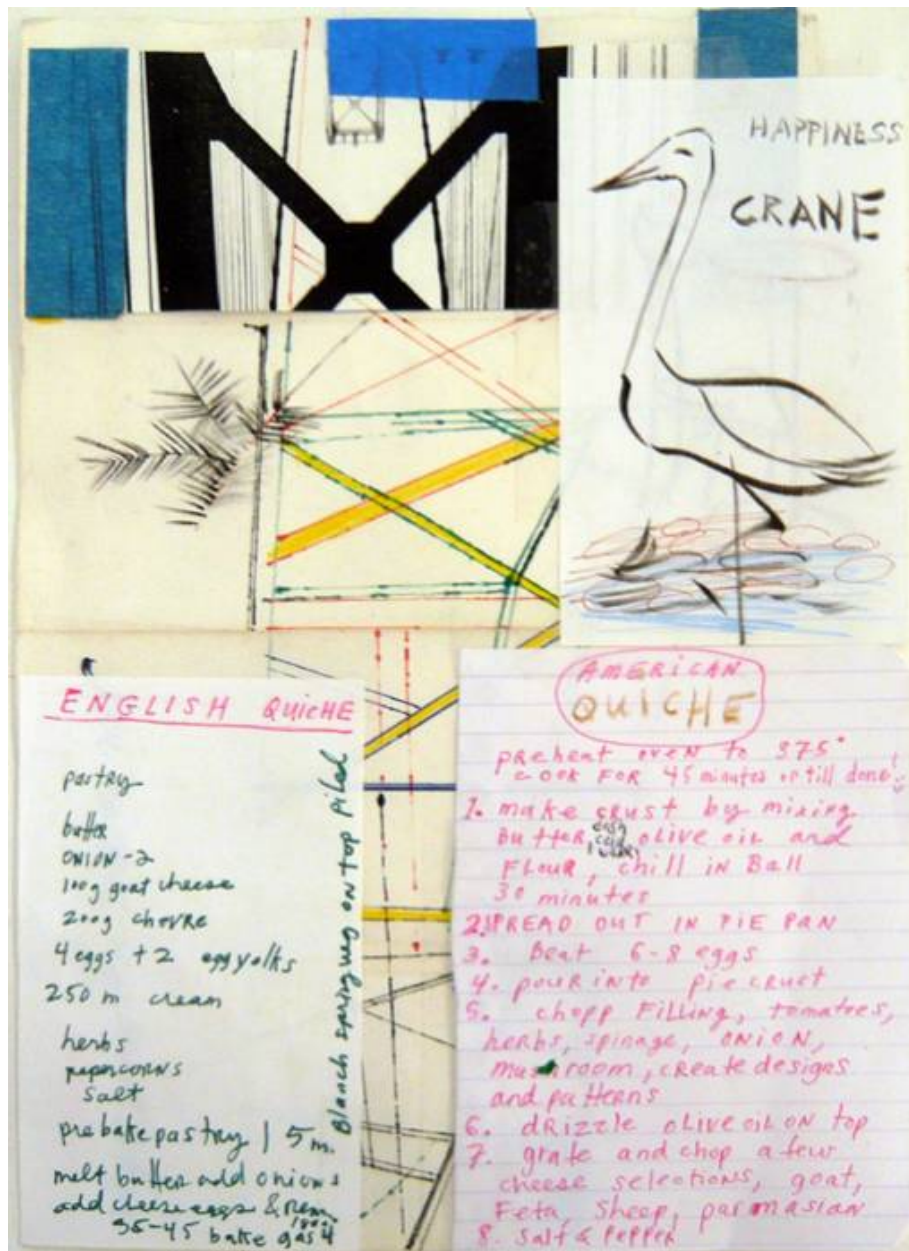 HAPPINESS
CRANE
ENGLISH QUICHE
pastry
butter
ONION-2
100g goat cheese
200g chevre
4 eggs + 2 egg yolks
250 m cream
herbs
pepercorns
salt
prebake pastry 15 m.
melt butter add onions
add cheese eggs &
35-45 bake gas 4
Blanch spring veg on top piled
AMERICAN
QUICHE
preheat oven to 375°
cook FOR 45 minutes or till done!
1. make crust by mixing
butter, olive oil and
FLOUR, chill in Ball
30 minutes
2. SPREAD OUT IN PIE PAN
3. Beat 6-8 eggs
4. pour into pie crust
5. chopp Filling, tomatoes,
herbs, spinage, ONION,
mushroom, create designs
and patterns
6. drizzle olive oil on top
7. grate and chop a few
cheese selections, goat,
Feta, Sheep, parmasian
8. salt & pepper